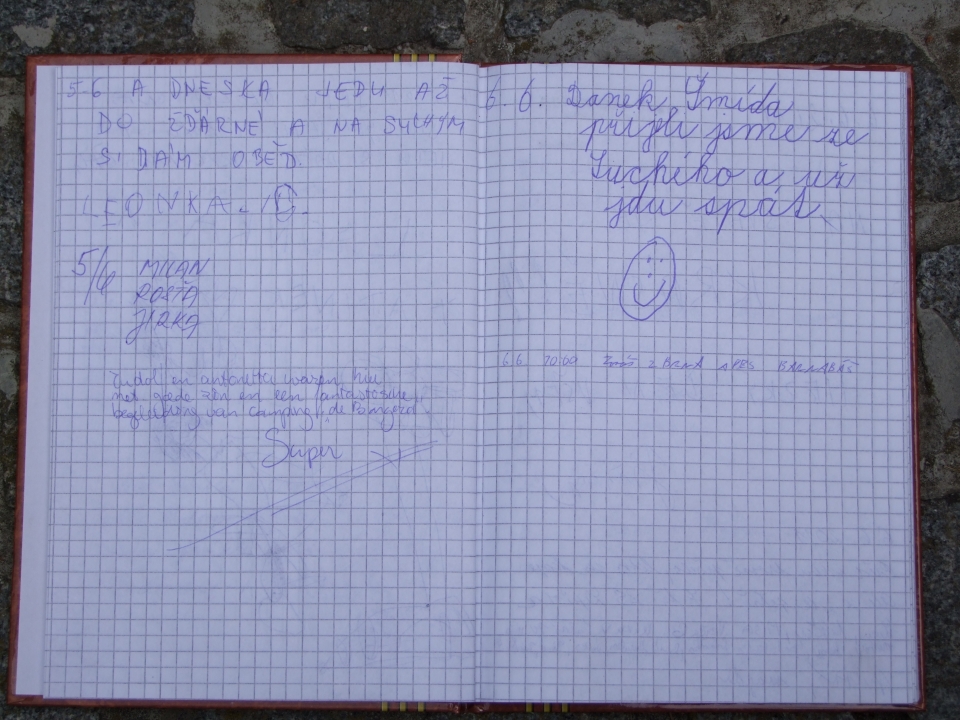 5-6 A DNESKA JEDU AŽ
DO ŽĎÁRNÉ A NA SUCHÝM
SI DÁM OBĚD.
LEONKA.
5/6 MILAN
ROSŤA
JIRKA
en antonetta waren hier
met goede zin en een fantastische
begeleiding van camping de Bongerd
Super
6.6. Danek Šmída
přijeli jsme ze
Suchého a už
jdu spát.
6.6 Z BRNA A PES BARNABÁŠ